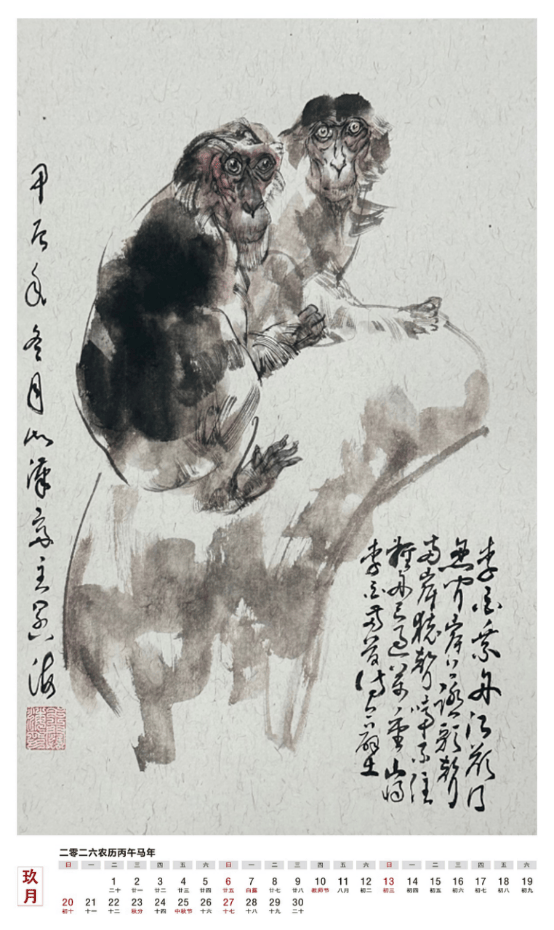 甲辰年冬月
李白乘舟
岸上踏歌聲
两岸猿聲啼不住
舟已過萬重山
李白
二零二六农历丙午马年
玖月
日 一 二 三 四 五 六 日 一 二 三 四 五 六 日 一 二 三 四 五 六
1 2 3 4 5 6 7 8 9 10 11 12 13 14 15 16 17 18 19
二十 廿一 廿二 廿三 廿四 廿五 白露 廿七 廿八 教师节 八月 初二 初三 初四 初五 初六 初七 初八 初九
20 21 22 23 24 25 26 27 28 29 30
初十 十一 十二 秋分 十四 中秋节 十六 十七 十八 十九 二十